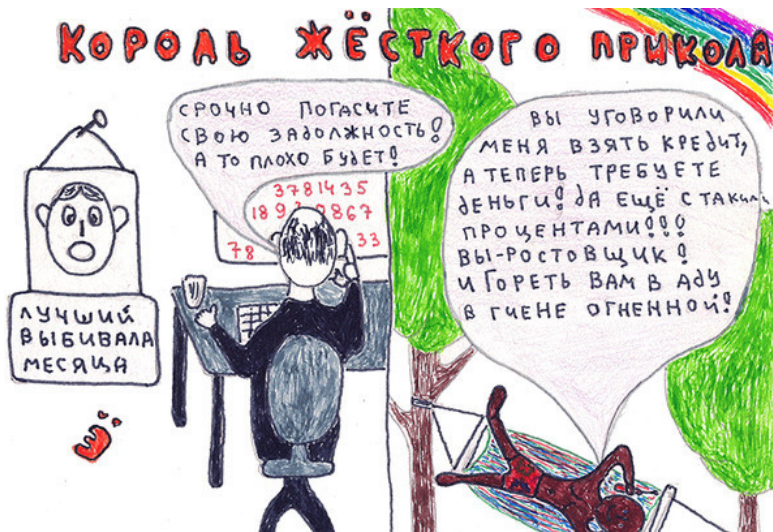 КОРОЛЬ ЖЁСТКОГО ПРИКОЛА
СРОЧНО ПОГАСИТЕ
СВОЮ ЗАДОЛЖНОСТЬ!
А ТО ПЛОХО БУДЕТ!
3781435
78 33
ЛУЧШИЙ
ВЫБИВАЛА
МЕСЯЦА
ВЫ УГОВОРИЛИ
МЕНЯ ВЗЯТЬ КРЕДИТ,
А ТЕПЕРЬ ТРЕБУЕТЕ
ДЕНЬГИ! ДА ЕЩЁ С ТАКИМИ
ПРОЦЕНТАМИ!!!
ВЫ-РОСТОВЩИК!
И ГОРЕТЬ ВАМ В АДУ
В ГИЕНЕ ОГНЕННОЙ!